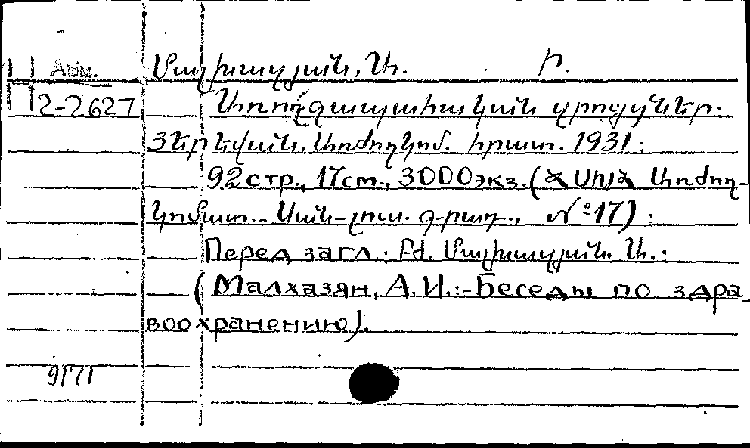 Арм. Մալխազյան, Ա. Ի.
П2-2627 Առողջապահական զրույցներ.
Յերեվան, Առժողկոմ. հրատ. 1931:
92стр., 17см., 3000экз. (ՀՍԽՀ Առժող-
կոմատ.- Սան-լուս. գրադ., №17):
Перед загл.: Բժ. Մալխազյան. Ա.:
(Малхазян, А.И.:-Беседы по здра-
воохранению).